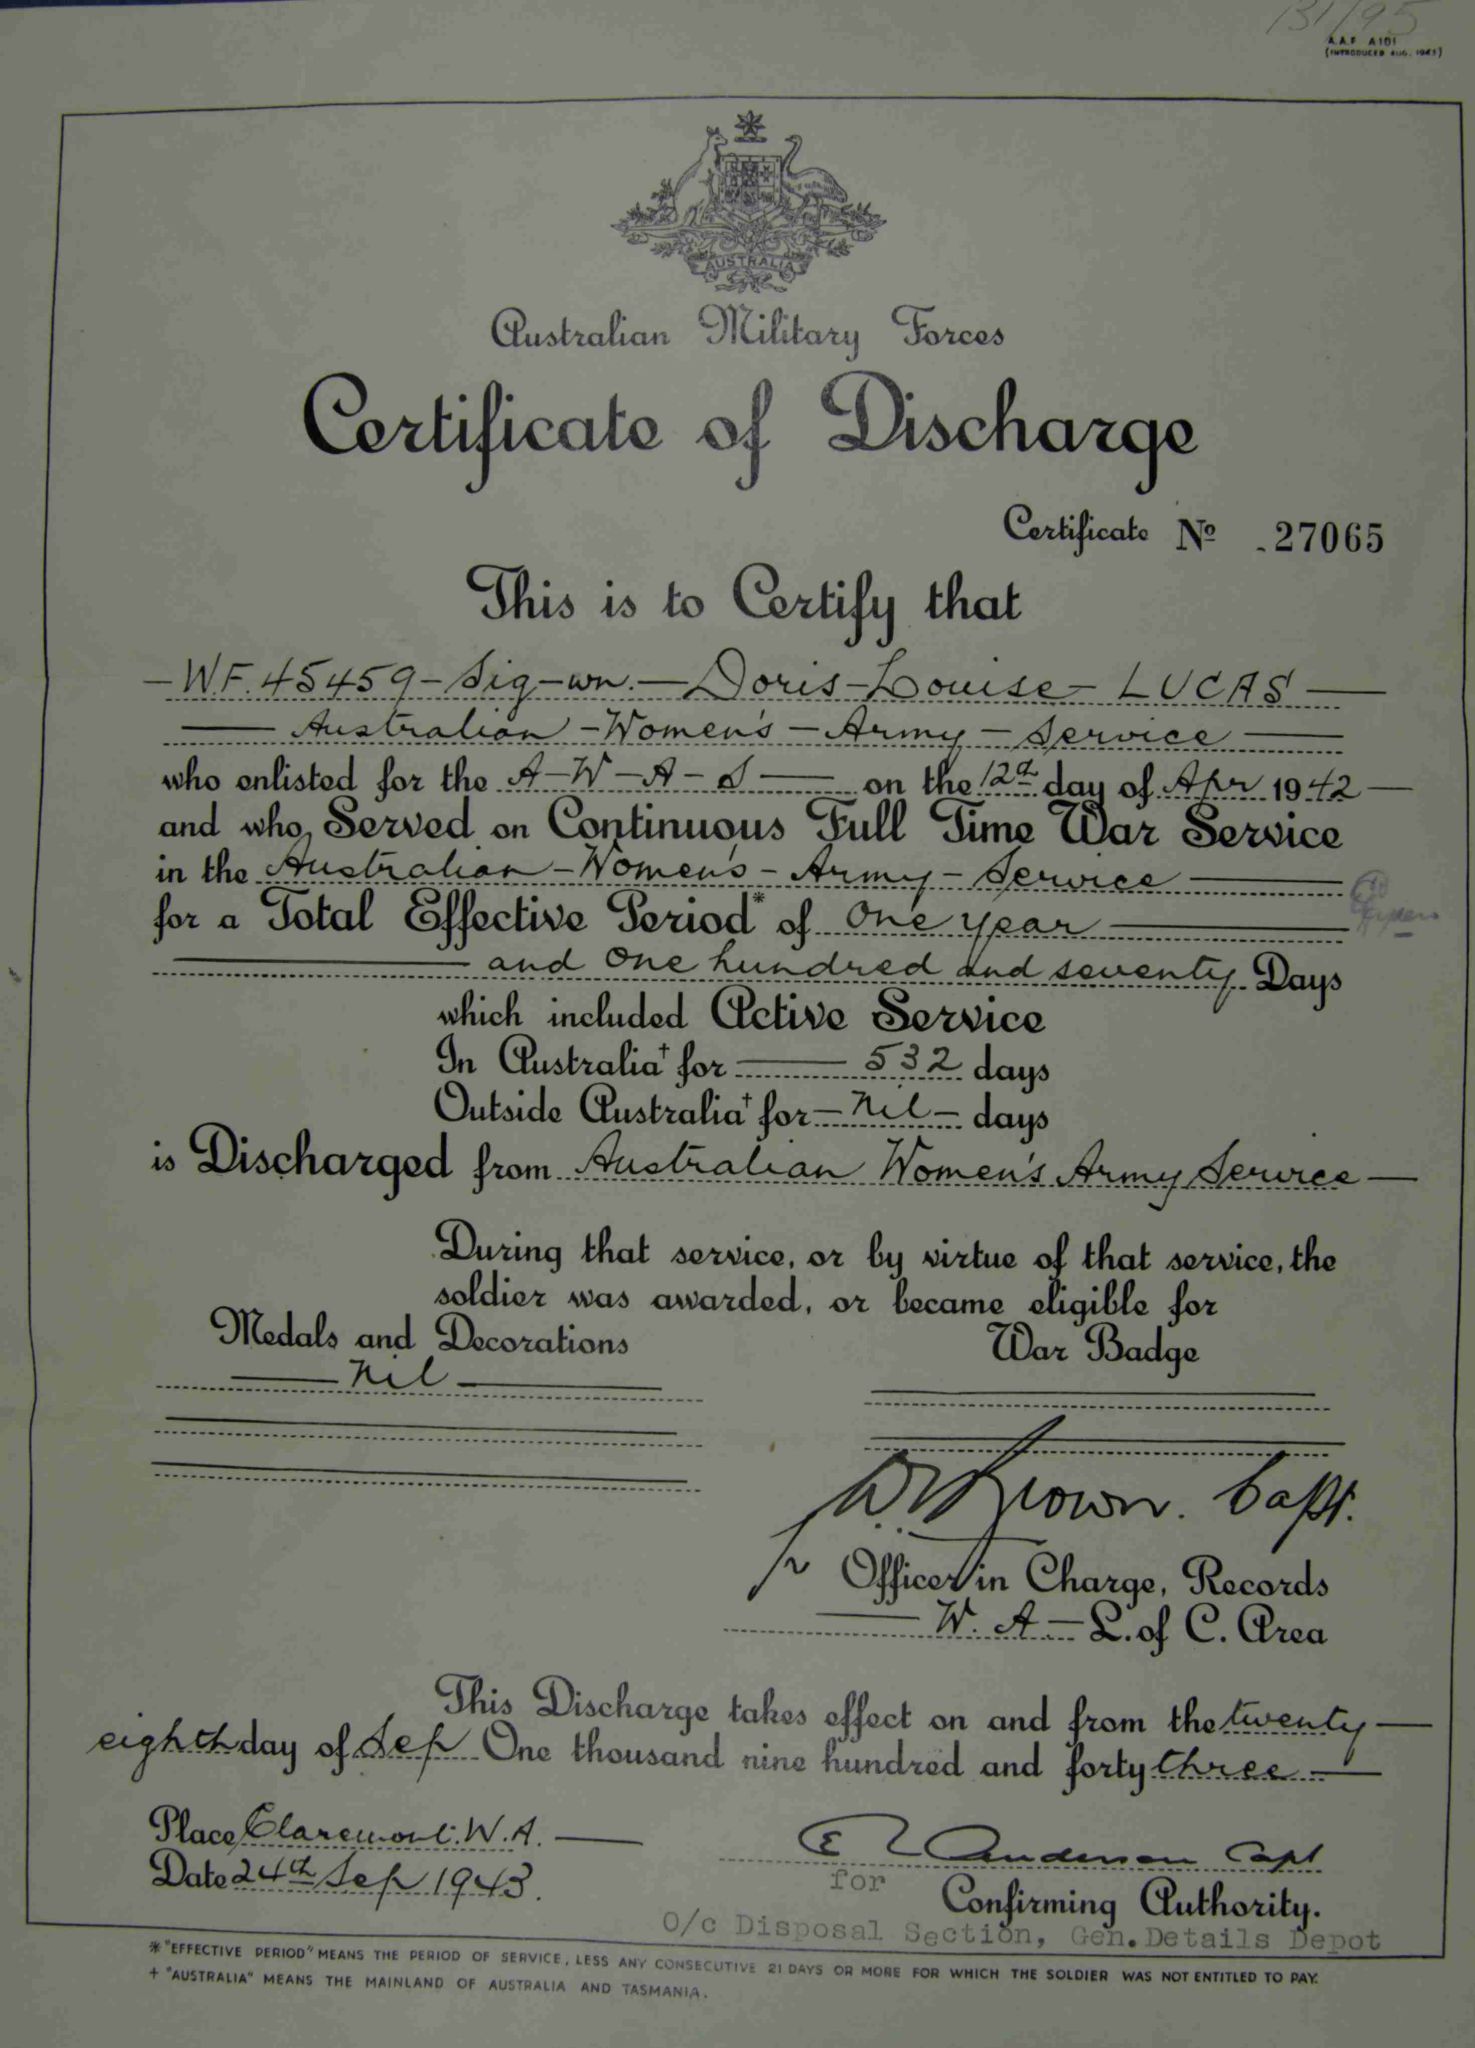 131/95
A.A.F. A101
(INTRODUCED AUG. 1943)
AUSTRALIA
Australian Military Forces
Certificate of Discharge
Certificate No 27065
This is to Certify that
— W.F. 45459 - Sig-wn. — Doris - Louise - LUCAS —
— Australian - Women's - Army - Service —
who enlisted for the A-W-A-S — on the 12th day of Apr 1942 —
and who Served on Continuous Full Time War Service
in the Australian - Women's - Army - Service —
for a Total Effective Period* of One year —
— and One hundred and seventy Days
which included Active Service
In Australia† for — 532 days
Outside Australia† for — Nil — days
is Discharged from Australian Women's Army Service —
During that service, or by virtue of that service, the
soldier was awarded, or became eligible for
Medals and Decorations War Badge
— Nil —
Brown. Capt.
for Officer in Charge, Records
— W. A — L. of C. Area
This Discharge takes effect on and from the twenty —
eighth day of Sep One thousand nine hundred and forty three —
Place Claremont. W.A. —
Date 24th Sep 1943.
E Anderson Capt
for Confirming Authority.
O/c Disposal Section, Gen. Details Depot
* "EFFECTIVE PERIOD" MEANS THE PERIOD OF SERVICE, LESS ANY CONSECUTIVE 21 DAYS OR MORE FOR WHICH THE SOLDIER WAS NOT ENTITLED TO PAY.
† "AUSTRALIA" MEANS THE MAINLAND OF AUSTRALIA AND TASMANIA.